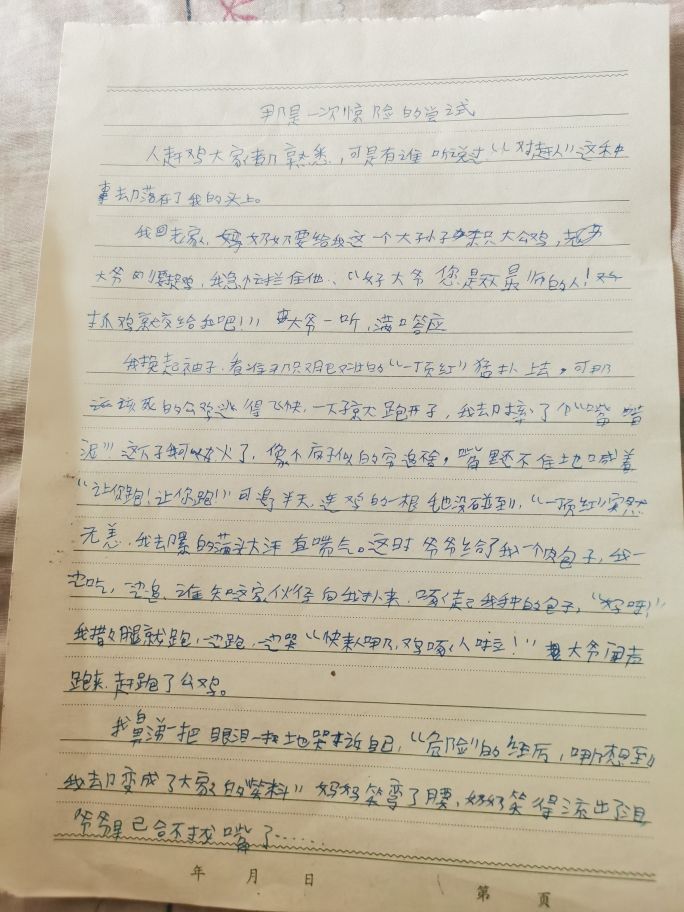 那是一次惊险的尝试
人赶鸡大家都熟悉,可是有谁听说过“鸡赶人”这种
事却落在了我的头上。
我回老家,奶奶要给我这个大孙子来只大公鸡,
大爷要捉鸡,我急忙拦住他、“好大爷您是最的人!
抓鸡就交给我吧!”大爷一听,满口答应
我挽起袖子,看准那只肥壮的“一顶红”猛扑上去,可那
该死的公鸡逃得飞快,一下惊大跑开了,我却摔了个“嘴啃
泥”这下子我可火了,像个疯子似的穷追不舍,嘴里还不住地喊着
“让你跑!让你跑!”可追半天,连鸡的一根毛也没碰到,“一顶红”安然
无恙,我却累的满头大汗直喘气。这时爷爷给了我一个肉包子,我一
边吃,一边追,谁知这家伙径向我扑来,啄住了我手中的包子,“好呀!”
我撒腿就跑,边跑,边哭“快来人呀,鸡啄人啦!”大爷闻声
跑来,赶跑了公鸡。
我鼻涕一把眼泪一把地哭诉自己,“危险”的经历,哪想到
我却变成了大家的“笑料”妈妈笑弯了腰,奶奶笑得流出了泪
爷爷早已合不拢嘴了……
年 月 日
第 页